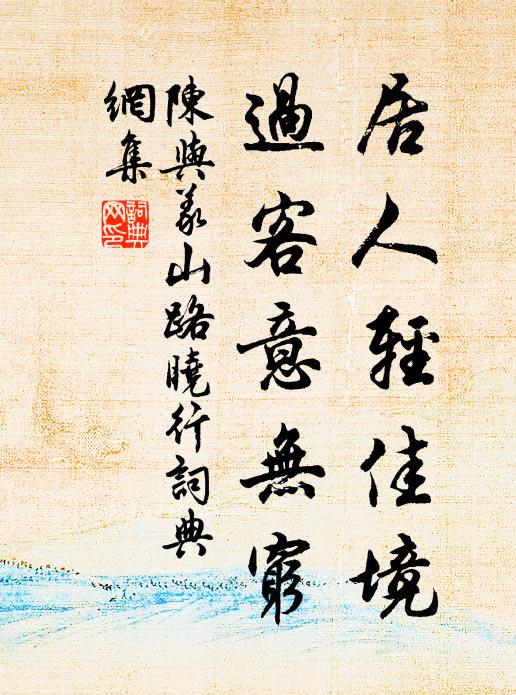 居人輕佳境
過客意無窮
陳與義山路曉行詞典
網集
詞典網印